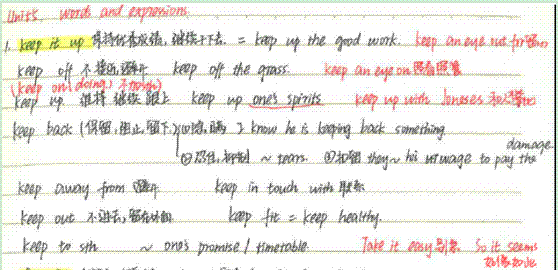 Unit5 words and expressions
1. keep it up 保持优秀成绩, 继续干下去. = keep up the good work. keep an eye out for
keep off 不接近, 避开 keep off the grass. keep an eye on 照看 照管
(keep on (doing) 不停地)
keep up 维持 继续 跟上 keep up one's spirits keep up with Joneses
keep back (保留, 阻止, 留下) I know he is keeping back something
~ tears. they ~ his wage to pay the damage
keep away from 避开 keep in touch with 联系
keep out 不进去, 留在外面 keep fit = keep healthy.
keep to sth ~ one's promise / timetable. Take it easy 别急. So it seems